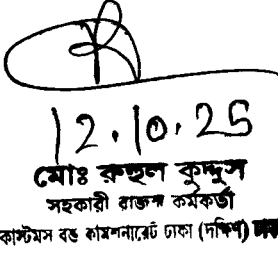 12.10.25
মোঃ রুহুল কুদ্দুস
সহকারী রাজস্ব কর্মকর্তা
কাস্টমস বন্ড কমিশনারেট ঢাকা (দক্ষিণ)